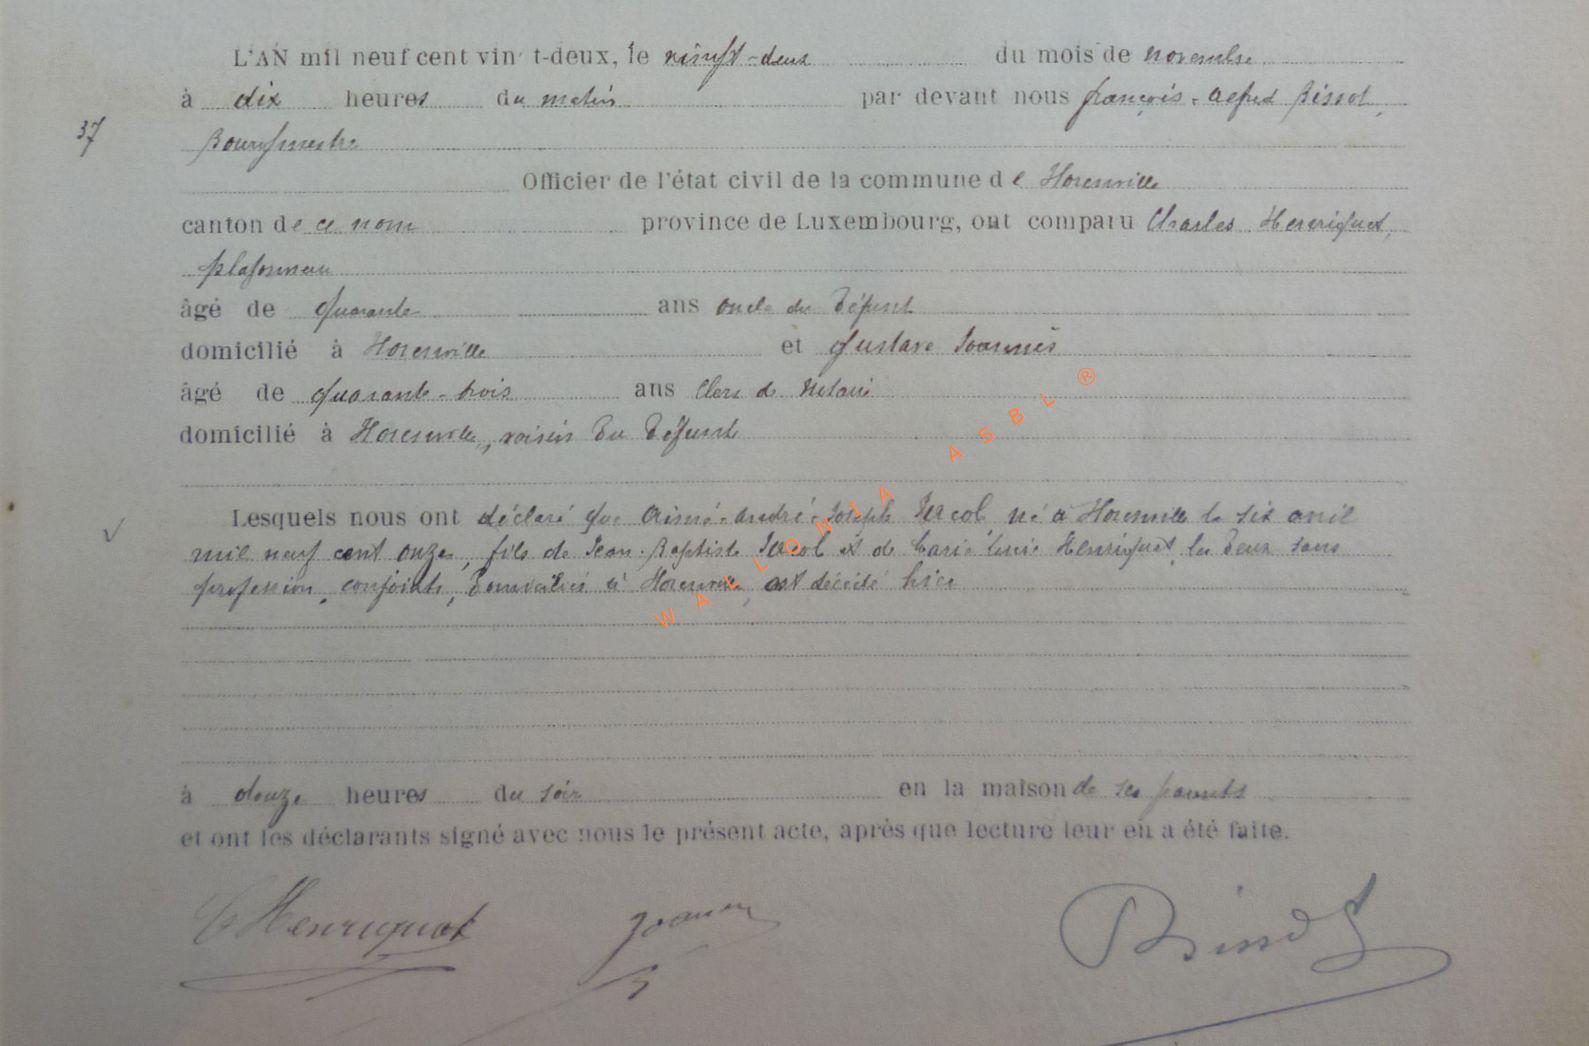 L'AN mil neuf cent vin t-deux, le vingt-deux du mois de novembre
à dix heures du matin par devant nous François-Alfred Bissot,
37
Bourgmestre
Officier de l'état civil de la commune de Florenville
canton de ce nom province de Luxembourg, ont comparu Charles Henriquet,
plafonneur
âgé de quarante ans oncle du défunt
domicilié à Florenville et Gustave Joannès
âgé de quarante-trois ans clerc de Notaire
domicilié à Florenville, voisin du défunt
Lesquels nous ont déclaré que Aimé-André-Joseph né à Florenville le six avril
mil neuf cent onze, fils de Jean-Baptiste et de Marie Henriquet, les deux sans
profession, conjoints, domiciliés à Florenville, est décédé hier
à douze heures du soir en la maison de ses parents
et ont les déclarants signé avec nous le présent acte, après que lecture leur en a été faite.
C Henriquet Joannès Bissot
WALLONIA ASBL ®